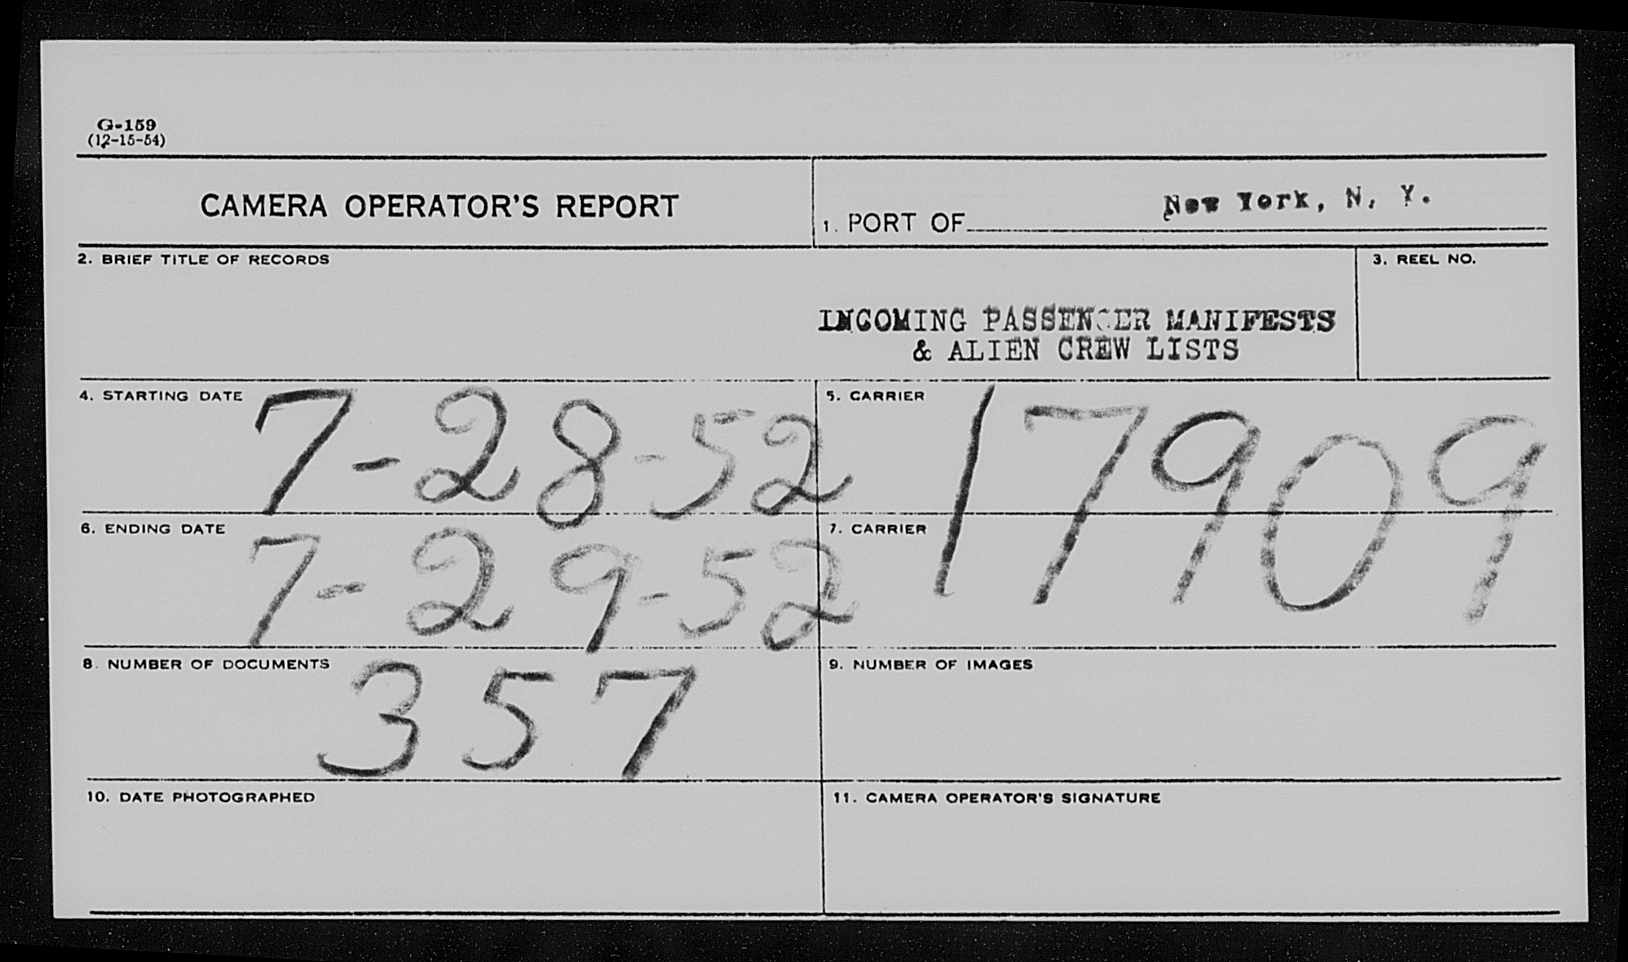 G-159
(12-15-54)
CAMERA OPERATOR'S REPORT
1. PORT OF New York, N. Y.
2. BRIEF TITLE OF RECORDS
3. REEL NO.
INCOMING PASSENGER MANIFESTS
& ALIEN CREW LISTS
4. STARTING DATE 7-28-52
5. CARRIER 17909
6. ENDING DATE 7-29-52
7. CARRIER
8. NUMBER OF DOCUMENTS 357
9. NUMBER OF IMAGES
10. DATE PHOTOGRAPHED
11. CAMERA OPERATOR'S SIGNATURE